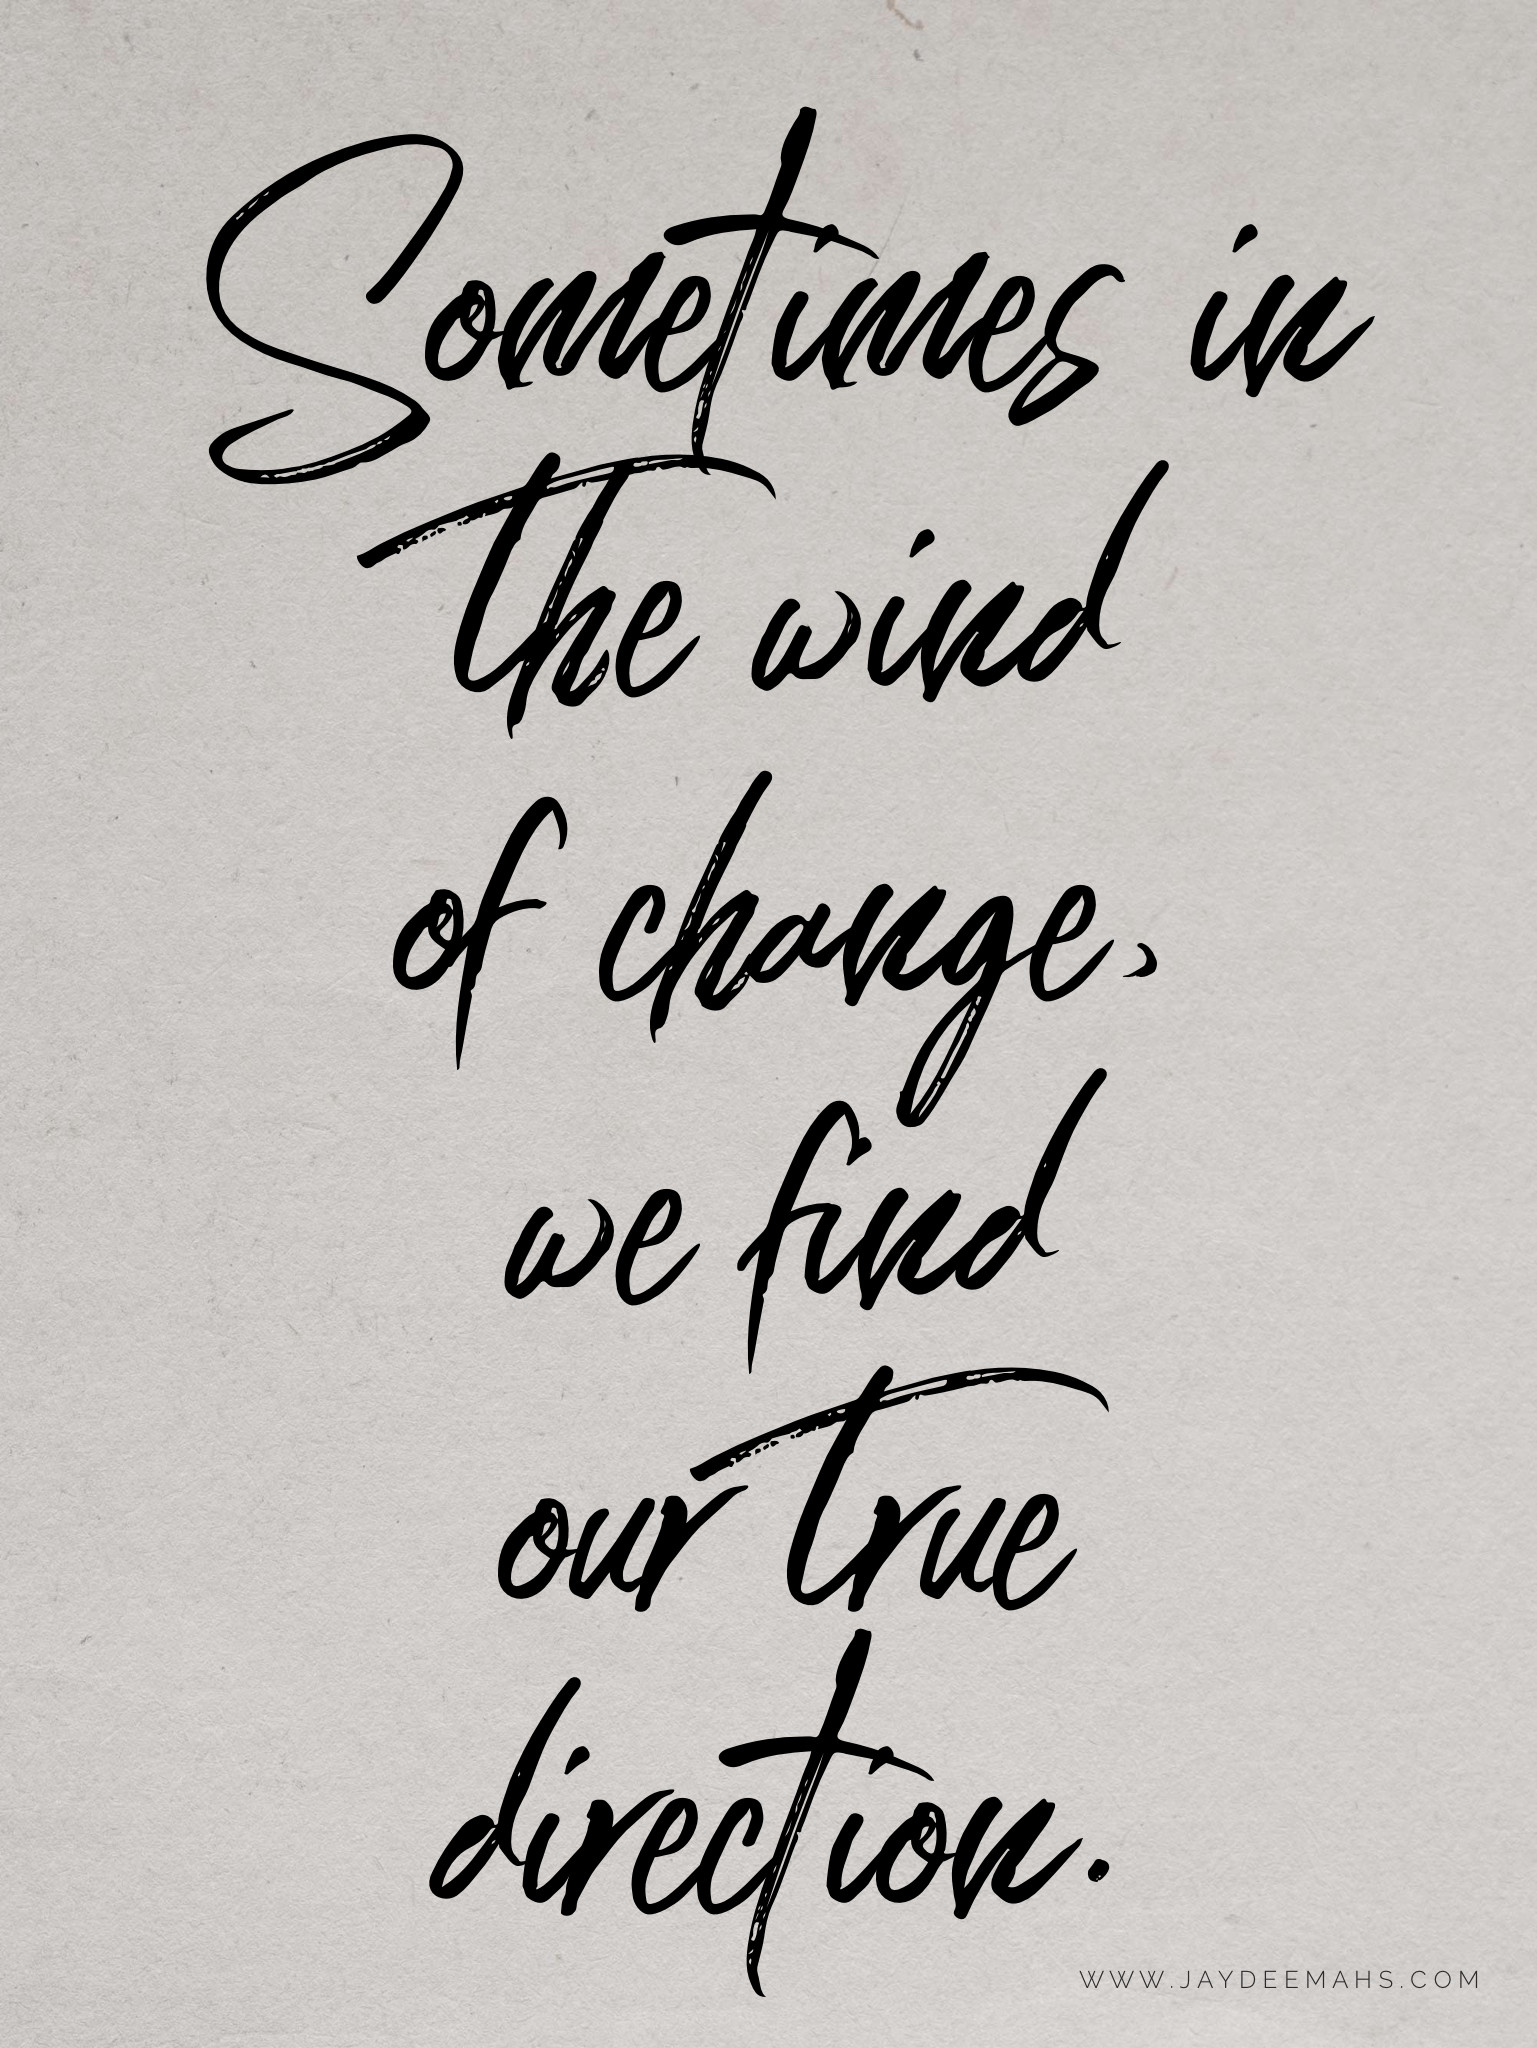 Sometimes in
the wind
of change,
we find
our true
direction.
WWW.JAYDEEMAHS.COM